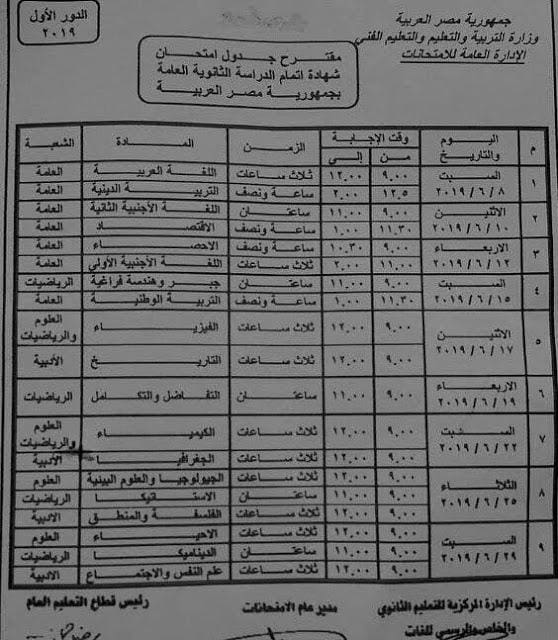 جمهورية مصر العربية
وزارة التربية والتعليم والتعليم الفني
الإدارة العامة للامتحانات
الدور الأول
٢٠١٩
مقترح جدول امتحان
شهادة اتمام الدراسة الثانوية العامة
بجمهورية مصر العربية
م اليوم والتاريخ وقت الإجابة الزمن المادة الشعبة
من إلى
١ السبت ٢٠١٩/٦/٨ ٩.٠٠ ١٢.٠٠ ثلاث ساعات اللغة العربية العامة
١٢.٥ ٢.٠٠ ساعة ونصف التربية الدينية العامة
٢ الاثنين ٢٠١٩/٦/١٠ ٩.٠٠ ١١.٠٠ ساعتان اللغة الأجنبية الثانية العامة
١١.٣٠ ١.٠٠ ساعة ونصف الاقتصاد العامة
٣ الاربعاء ٢٠١٩/٦/١٢ ٩.٠٠ ١٠.٣٠ ساعة ونصف الاحصاء العامة
١١.٠٠ ٢.٠٠ ثلاث ساعات اللغة الأجنبية الأولي العامة
٤ السبت ٢٠١٩/٦/١٥ ٩.٠٠ ١١.٠٠ ساعتان جبر وهندسة فراغية الرياضيات
١١.٣٠ ١.٠٠ ساعة ونصف التربية الوطنية العامة
٥ الاثنين ٢٠١٩/٦/١٧ ٩.٠٠ ١٢.٠٠ ثلاث ساعات الفيزياء العلوم والرياضيات
٩.٠٠ ١٢.٠٠ ثلاث ساعات التاريخ الأدبية
٦ الاربعاء ٢٠١٩/٦/١٩ ٩.٠٠ ١١.٠٠ ساعتان التفاضل والتكامل الرياضيات
٧ السبت ٢٠١٩/٦/٢٢ ٩.٠٠ ١٢.٠٠ ثلاث ساعات الكيمياء العلوم والرياضيات
٩.٠٠ ١٢.٠٠ ثلاث ساعات الجغرافيا الأدبية
٨ الثلاثاء ٢٠١٩/٦/٢٥ ٩.٠٠ ١٢.٠٠ ثلاث ساعات الجيولوجيا والعلوم البيئية العلوم
٩.٠٠ ١١.٠٠ ساعتان الاستاتيكا الرياضيات
٩.٠٠ ١٢.٠٠ ثلاث ساعات الفلسفة والمنطق الادبية
٩ السبت ٢٠١٩/٦/٢٩ ٩.٠٠ ١٢.٠٠ ثلاث ساعات الاحياء العلوم
٩.٠٠ ١١.٠٠ ساعتان الديناميكا الرياضيات
٩.٠٠ ١٢.٠٠ ثلاث ساعات علم النفس والاجتماع الادبية
رئيس الإدارة المركزية للتعليم الثانوي
والخاص والرسمي للغات
مدير عام الامتحانات
رئيس قطاع التعليم العام